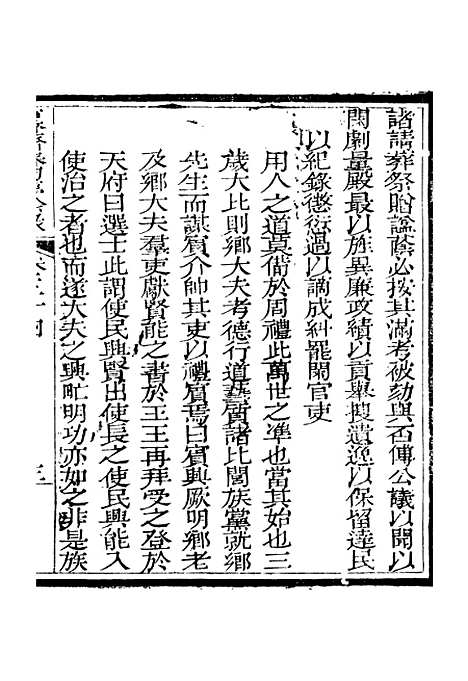 諸請葬祭贈諡蔭必按其滿考被劾與否傳公議以聞以
閑劇量殿最以旌異廉政績以貢舉搜遺逸以保留達民
以紀錄徵術過以謫戍糾罷閑官吏
用人之道莫備於周禮此萬世之凖也當其始也三
歳大比則鄉大夫考德行道藝質諸比閭族黨就鄉
先生而謀賔介帥其吏以禮賔焉曰賔興厥明鄉老
及鄉大夫羣吏獻賢能之書於王王再拜受之登於
天府曰選士此謂使民興賢出使長之使民興能入
使治之者也而遂大夫之興甿明功亦如之非是族